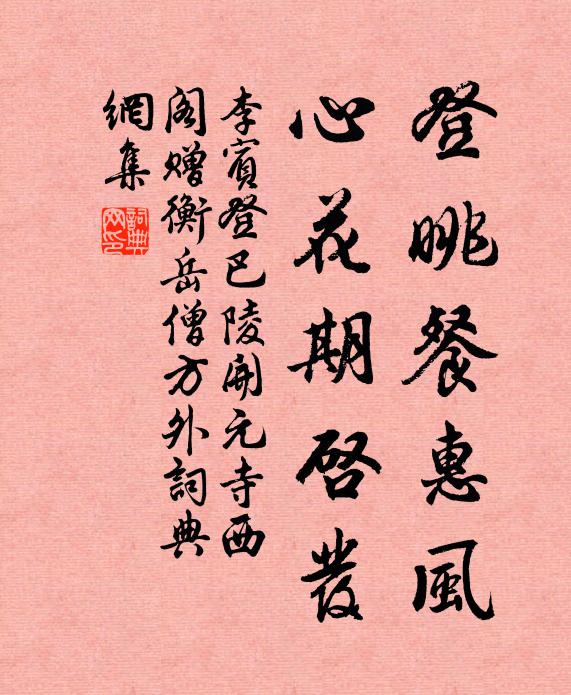 登眺餐惠風
心花期啓發
李賓登巴陵開元寺西
閣贈衡岳僧方外詞典
網集
詞典
网印